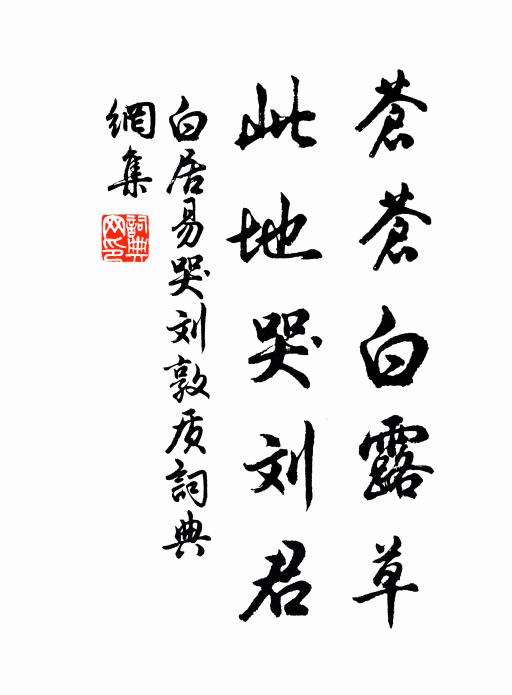 蒼蒼白露草
此地哭刘君
白居易哭刘敦质詞典
網集
詞典网印